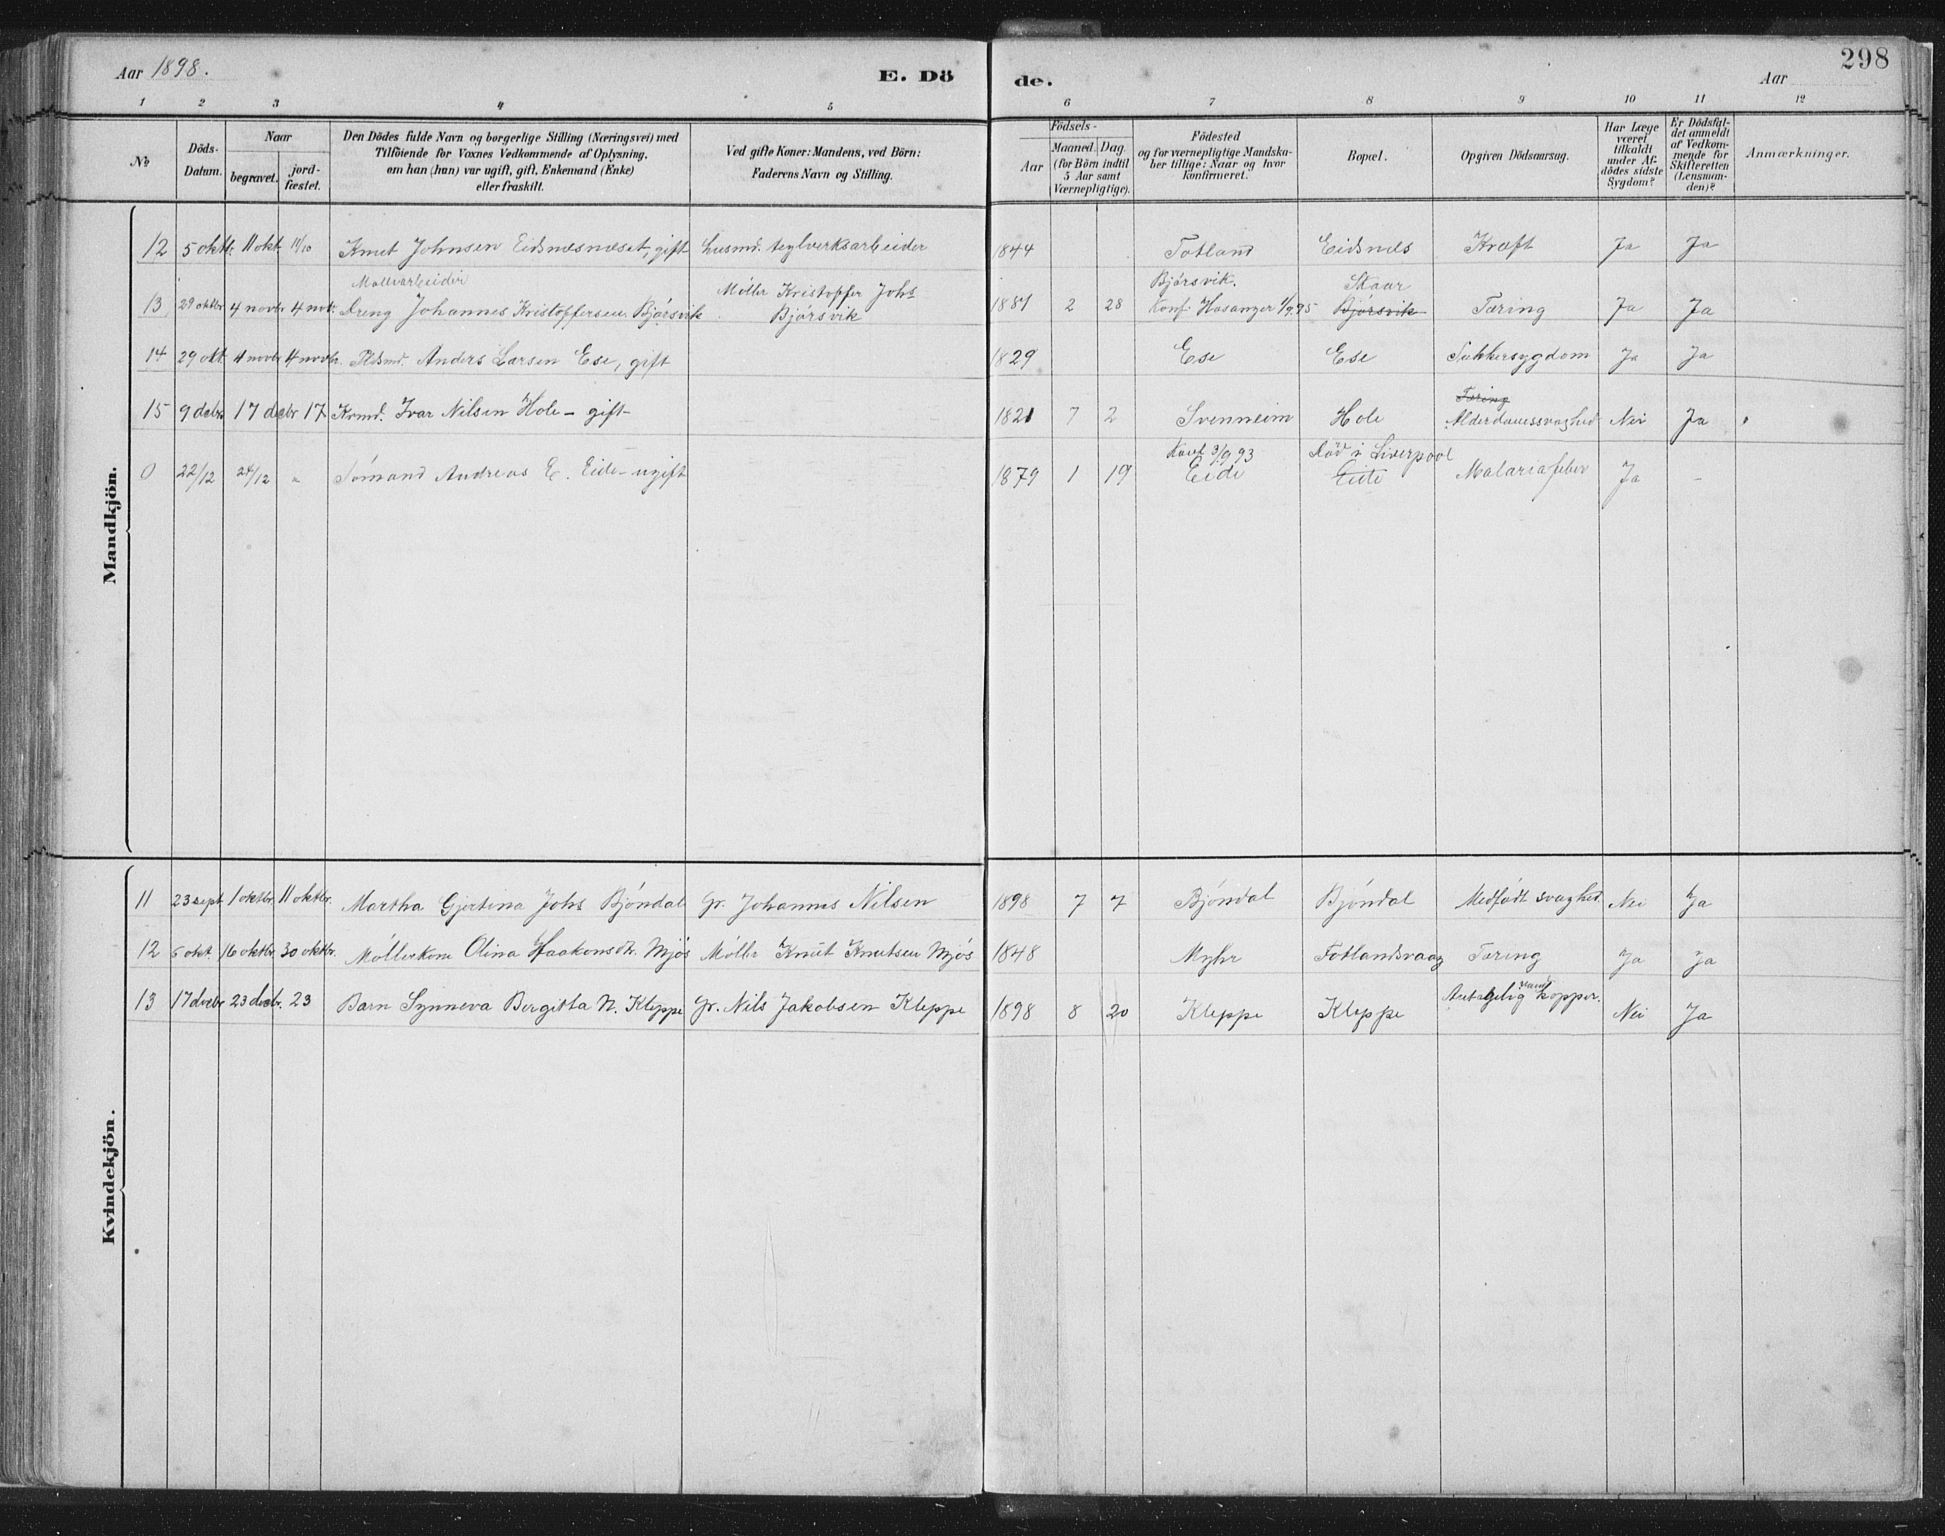 298
Aar 1898. E. Dö de. Aar
1 2 3 4 5 6 7 8 9 10 11 12
No
Döds-Datum.
Naar
begravet.
jord-fæstet.
Den Dödes fulde Navn og borgerlige Stilling (Næringsvei) med
Tilföiende for Voxnes Vedkommende af Oplysning,
om han (hun) var ugift, gift, Enkemand (Enke)
eller fraskilt.
Ved gifte Koner: Mandens, ved Börn:
Faderens Navn og Stilling.
Födsels-
Aar
Maaned. Dag.
(for Börn indtil
5 Aar samt
Værnepligtige).
Födested
og for værnepligtige Mandska-
ber tillige: Naar og hvor
konfirmeret.
Bopæl.
Opgiven Dödsaarsag.
Har Læge
været
tilkaldt
under Af-
dödes sidste
Sygdom?
Er Dödsfal-
det anmeldt
af Vedkom-
mende for
Skifteretten
(Lensman-
den)?
Anmærkninger.
Mandkjön.
12 5 oktbr. 11 okt. 11/10 Knut Johnsen Eidsnesneset, gift husmd. teglverksarbeider 1844 Totland Eidsnes Kræft Ja Ja
Møllearbeider Møller Kristoffer Johs Bjørsvik. Skaar
13 29 oktbr 4 novbr 4 novb. Dreng Johannes Kristoffersen Bjørsvik Bjørsvik 1881 2 28 Konf. Hosanger 1/9 95 Bjørsvik Tæring Ja Ja
14 29 okt 4 novbr 4 novbr. Anders Larsen Ese, gift 1829 Ese Ese Sukkersygdom Ja Ja
Tæring
15 9 decbr. 17 decbr 17 Kvmd. Ivar Nilsen Hole - gift - 1821 7 2 Svenneim Hole Alderdomssvaghed Nei Ja
Konf 3/9 93 Død i Liverpool
0 22/12 24/12 " Sømand Andreas E. Eide - ugift 1879 1 19 Eide Eide Malariafeber Ja -
Kvindekjön.
11 23 sept 1 oktbr. 11 oktbr. Martha Gjertina Johs Bjøndal Gr. Johannes Nilsen 1898 7 7 Bjøndal Bjøndal Medfødt svaghed Nei Ja
12 5 okt 16 oktbr. 30 oktbr. Møllerkone Olina Haakonsdtr. Mjøs Møller Knut Knutsen Mjøs 1848 Myhr Totlandsvaag Tæring Ja Ja
13 17 decbr 23 decbr. 23 Barn Synneva Bergitta N. Kleppe Gr. Nils Jakobsen Kleppe 1898 8 20 Kleppe Kleppe Antagelig vand kopper. Nei Ja